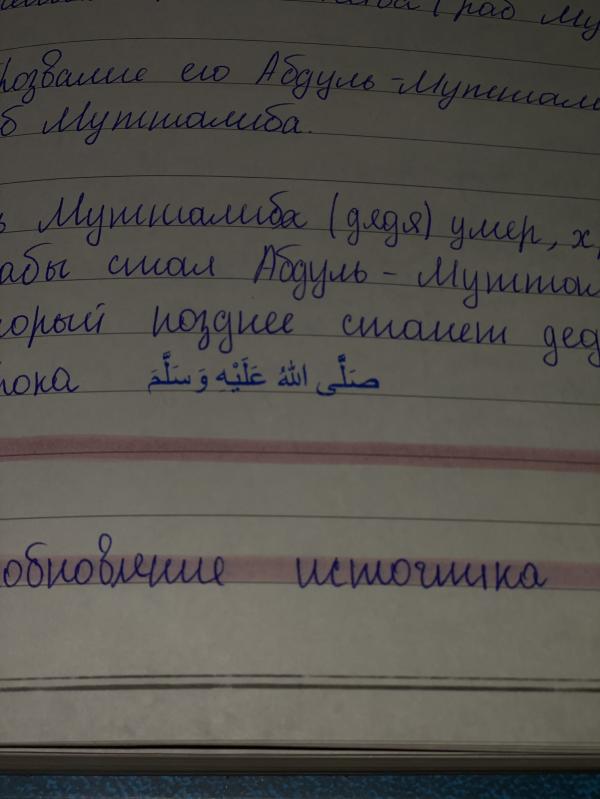 (раб Му
розвание его Абдуль-Мутталиб
б Мутталиба.
ь Мутталиба (дядя) умер, х
абы стал Абдуль - Муттал
торый позднее станет дед
рока صَلَّى اللهُ عَلَيْهِ وَ سَلَّمَ
обновление источника